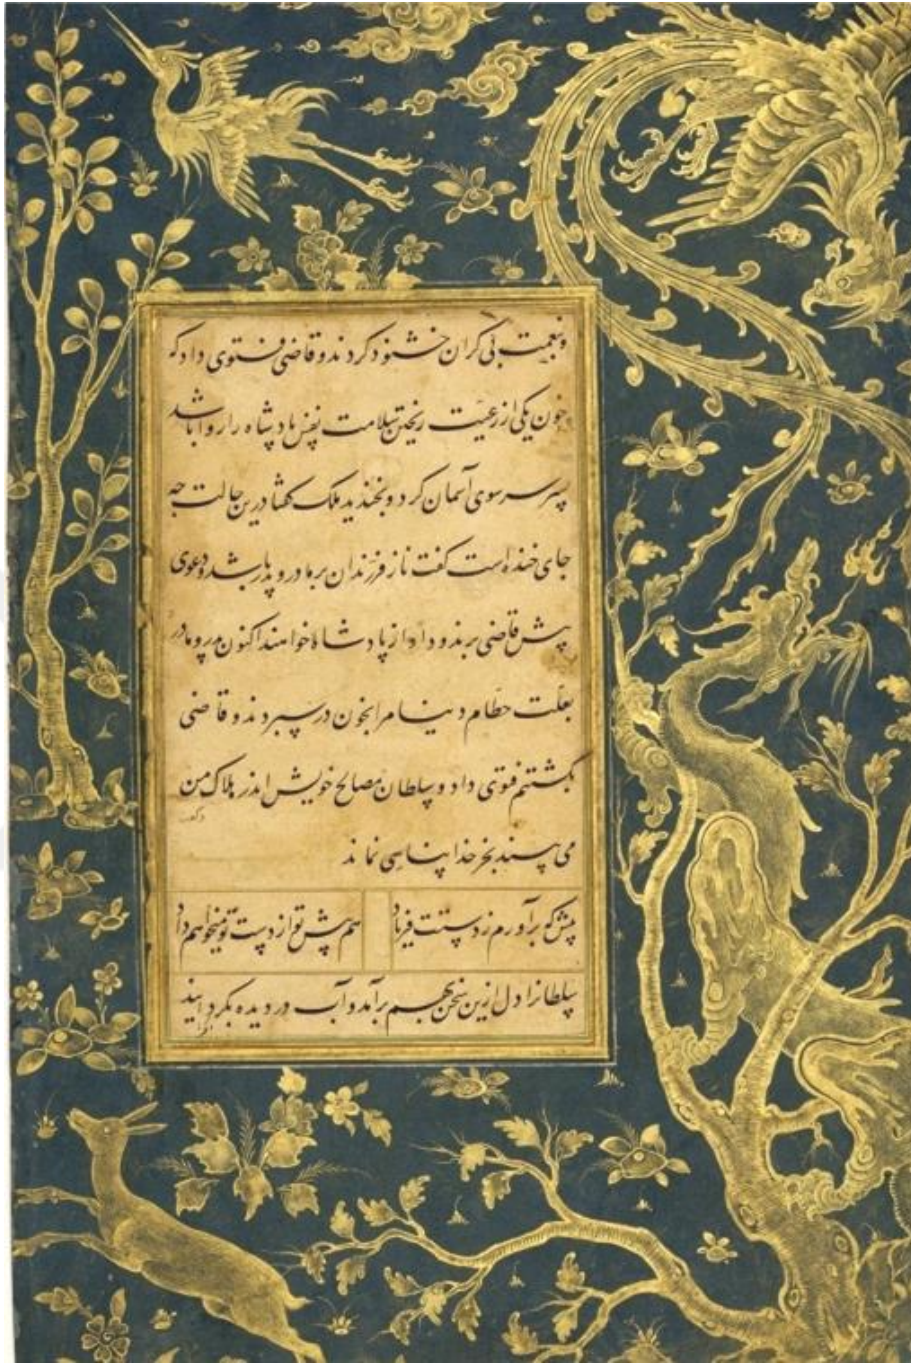 و نعمت بی کران خشنود کردند و قاضی فتوی داد که
خون یکی از رعیت ریختن سلامت نفس پادشاه را روا باشد
پسر سر سوی آسمان کرد و بخندید ملک گفتا درین حالت چه
جای خنده است گفت ناز فرزندان بر مادر و پدر باشد و دعوی
پیش قاضی برند و داد از پادشاه خواهند اکنون پدر و مادر
بعلت حطام دنیا مرا بخون در سپردند و قاضی
بکشتنم فتوی داد و سلطان مصالح خویش اندر هلاک من
می بیند بجز خدا پناهی نماند
پیش که برآورم ز دستت فریاد
هم پیش تو از دست تو میخواهم داد
سلطانرا دل ازین سخن بهم برآمد و آب در دیده بگردانید